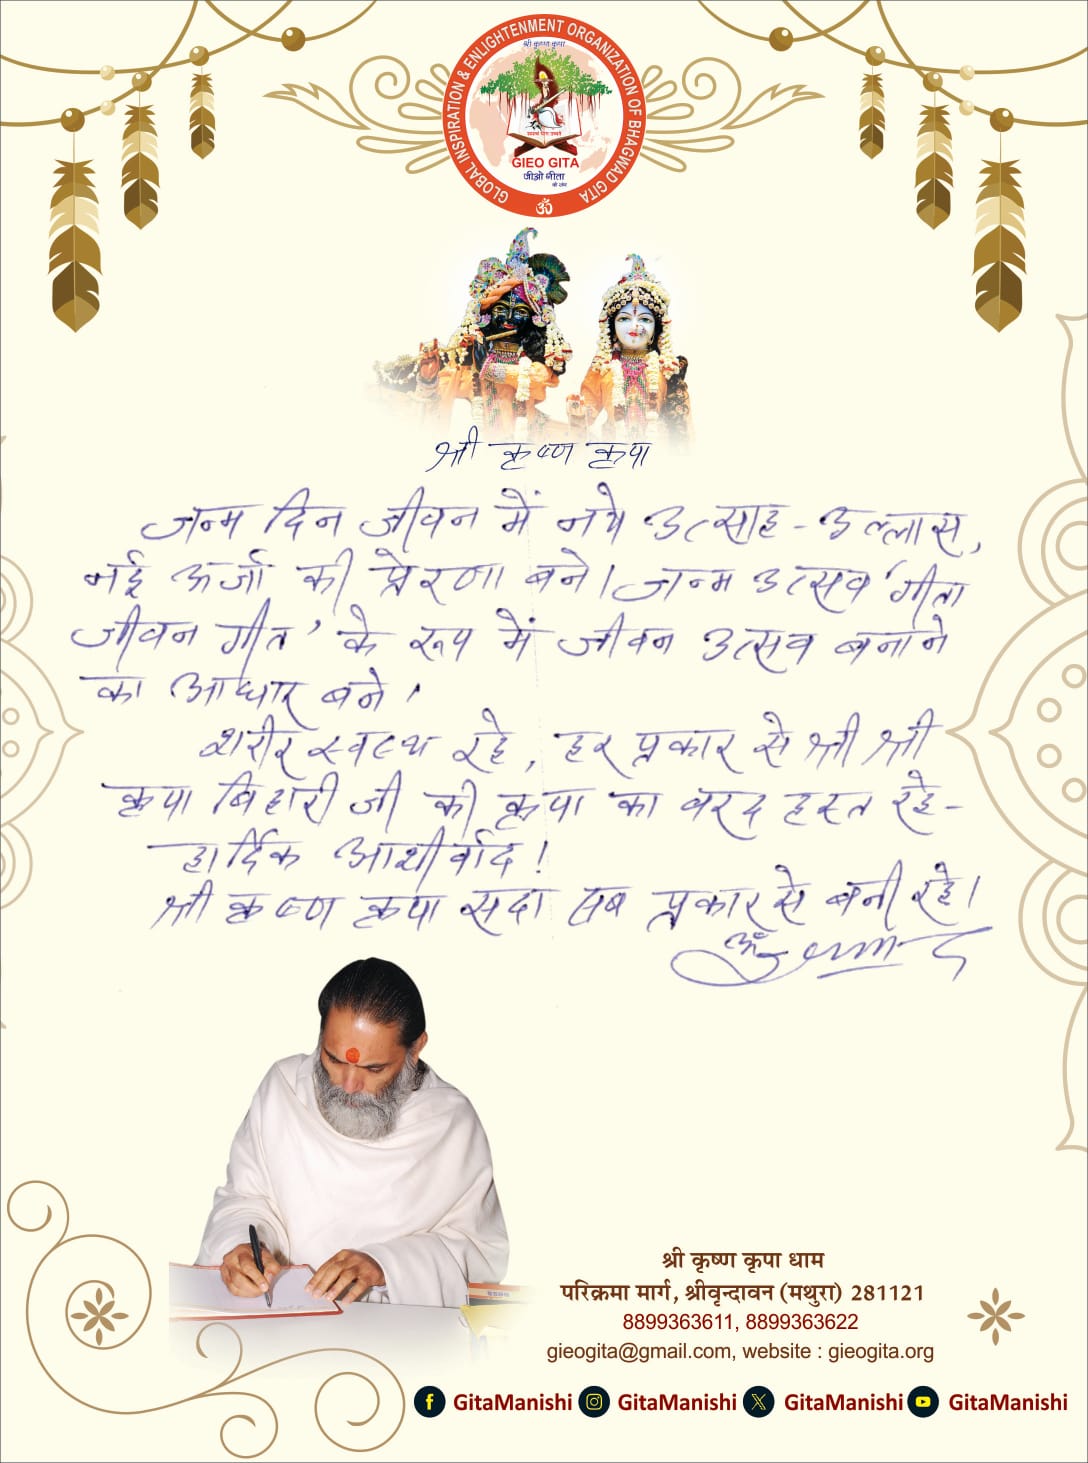 GLOBAL INSPIRATION & ENLIGHTENMENT ORGANIZATION OF BHAGWAD GITA
श्री कृष्ण कृपा
GIEO GITA
जीओ गीता
ॐ
श्री कृष्ण कृपा
जन्म दिन जीवन में नये उत्साह - उल्लास,
नई ऊर्जा की प्रेरणा बने। जन्म उत्सव 'गीता
जीवन गीत' के रूप में जीवन उत्सव बनाने
का आधार बने।
शरीर स्वस्थ रहे, हर प्रकार से श्री श्री
कृपा बिहारी जी की कृपा का वरद हस्त रहे -
हार्दिक आशीर्वाद!
श्री कृष्ण कृपा सदा सब प्रकार से बनी रहे।
श्री कृष्ण कृपा धाम
परिक्रमा मार्ग, श्रीवृन्दावन (मथुरा) 281121
8899363611, 8899363622
gieogita@gmail.com, website : gieogita.org
GitaManishi GitaManishi GitaManishi GitaManishi